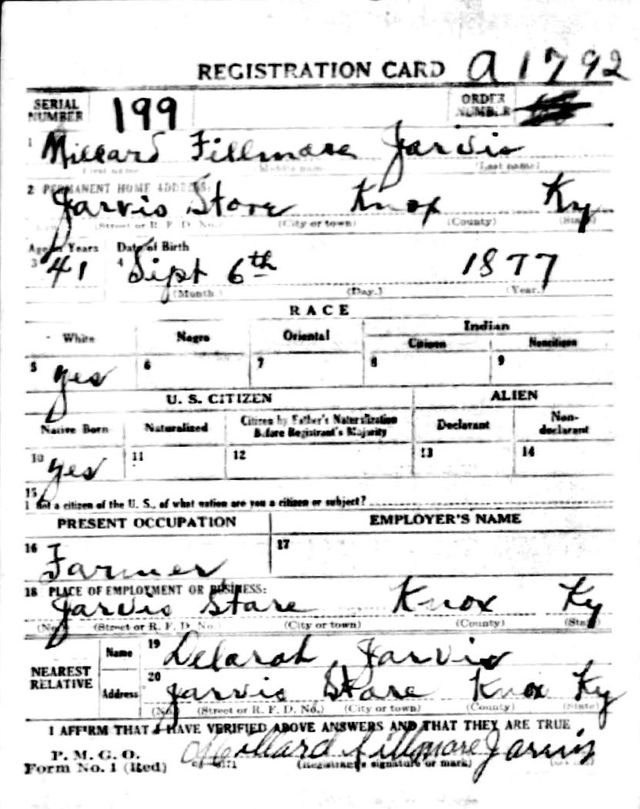 REGISTRATION CARD A 1792
SERIAL NUMBER 199 ORDER NUMBER
1 Millard Fillmore Jarvis
(First name) (Middle name) (Last name)
2 PERMANENT HOME ADDRESS:
Jarvis Store Knox Ky
(No.) (Street or R. F. D. No.) (City or town) (County) (State)
Age in Years Date of Birth
3 41 4 Sept 6th 1877
(Month) (Day.) (Year.)
RACE
White Negro Oriental Indian
Citizen Noncitizen
5 yes 6 7 8 9
U. S. CITIZEN ALIEN
Native Born Naturalized Citizen by Father's Naturalization Before Registrant's Majority Declarant Non-declarant
10 yes 11 12 13 14
15
If not a citizen of the U. S., of what nation are you a citizen or subject?
PRESENT OCCUPATION EMPLOYER'S NAME
16 Farmer 17
18 PLACE OF EMPLOYMENT OR BUSINESS:
Jarvis Store Knox Ky
(No.) (Street or R. F. D. No.) (City or town) (County) (State)
NEAREST RELATIVE Name 19 Delarah Jarvis
Address 20 Jarvis Store Knox Ky
(No.) (Street or R. F. D. No.) (City or town) (County) (State)
I AFFIRM THAT I HAVE VERIFIED ABOVE ANSWERS AND THAT THEY ARE TRUE
P. M. G. O.
Form No. 1 (Red) Millard Fillmore Jarvis
(Registrant's signature or mark)